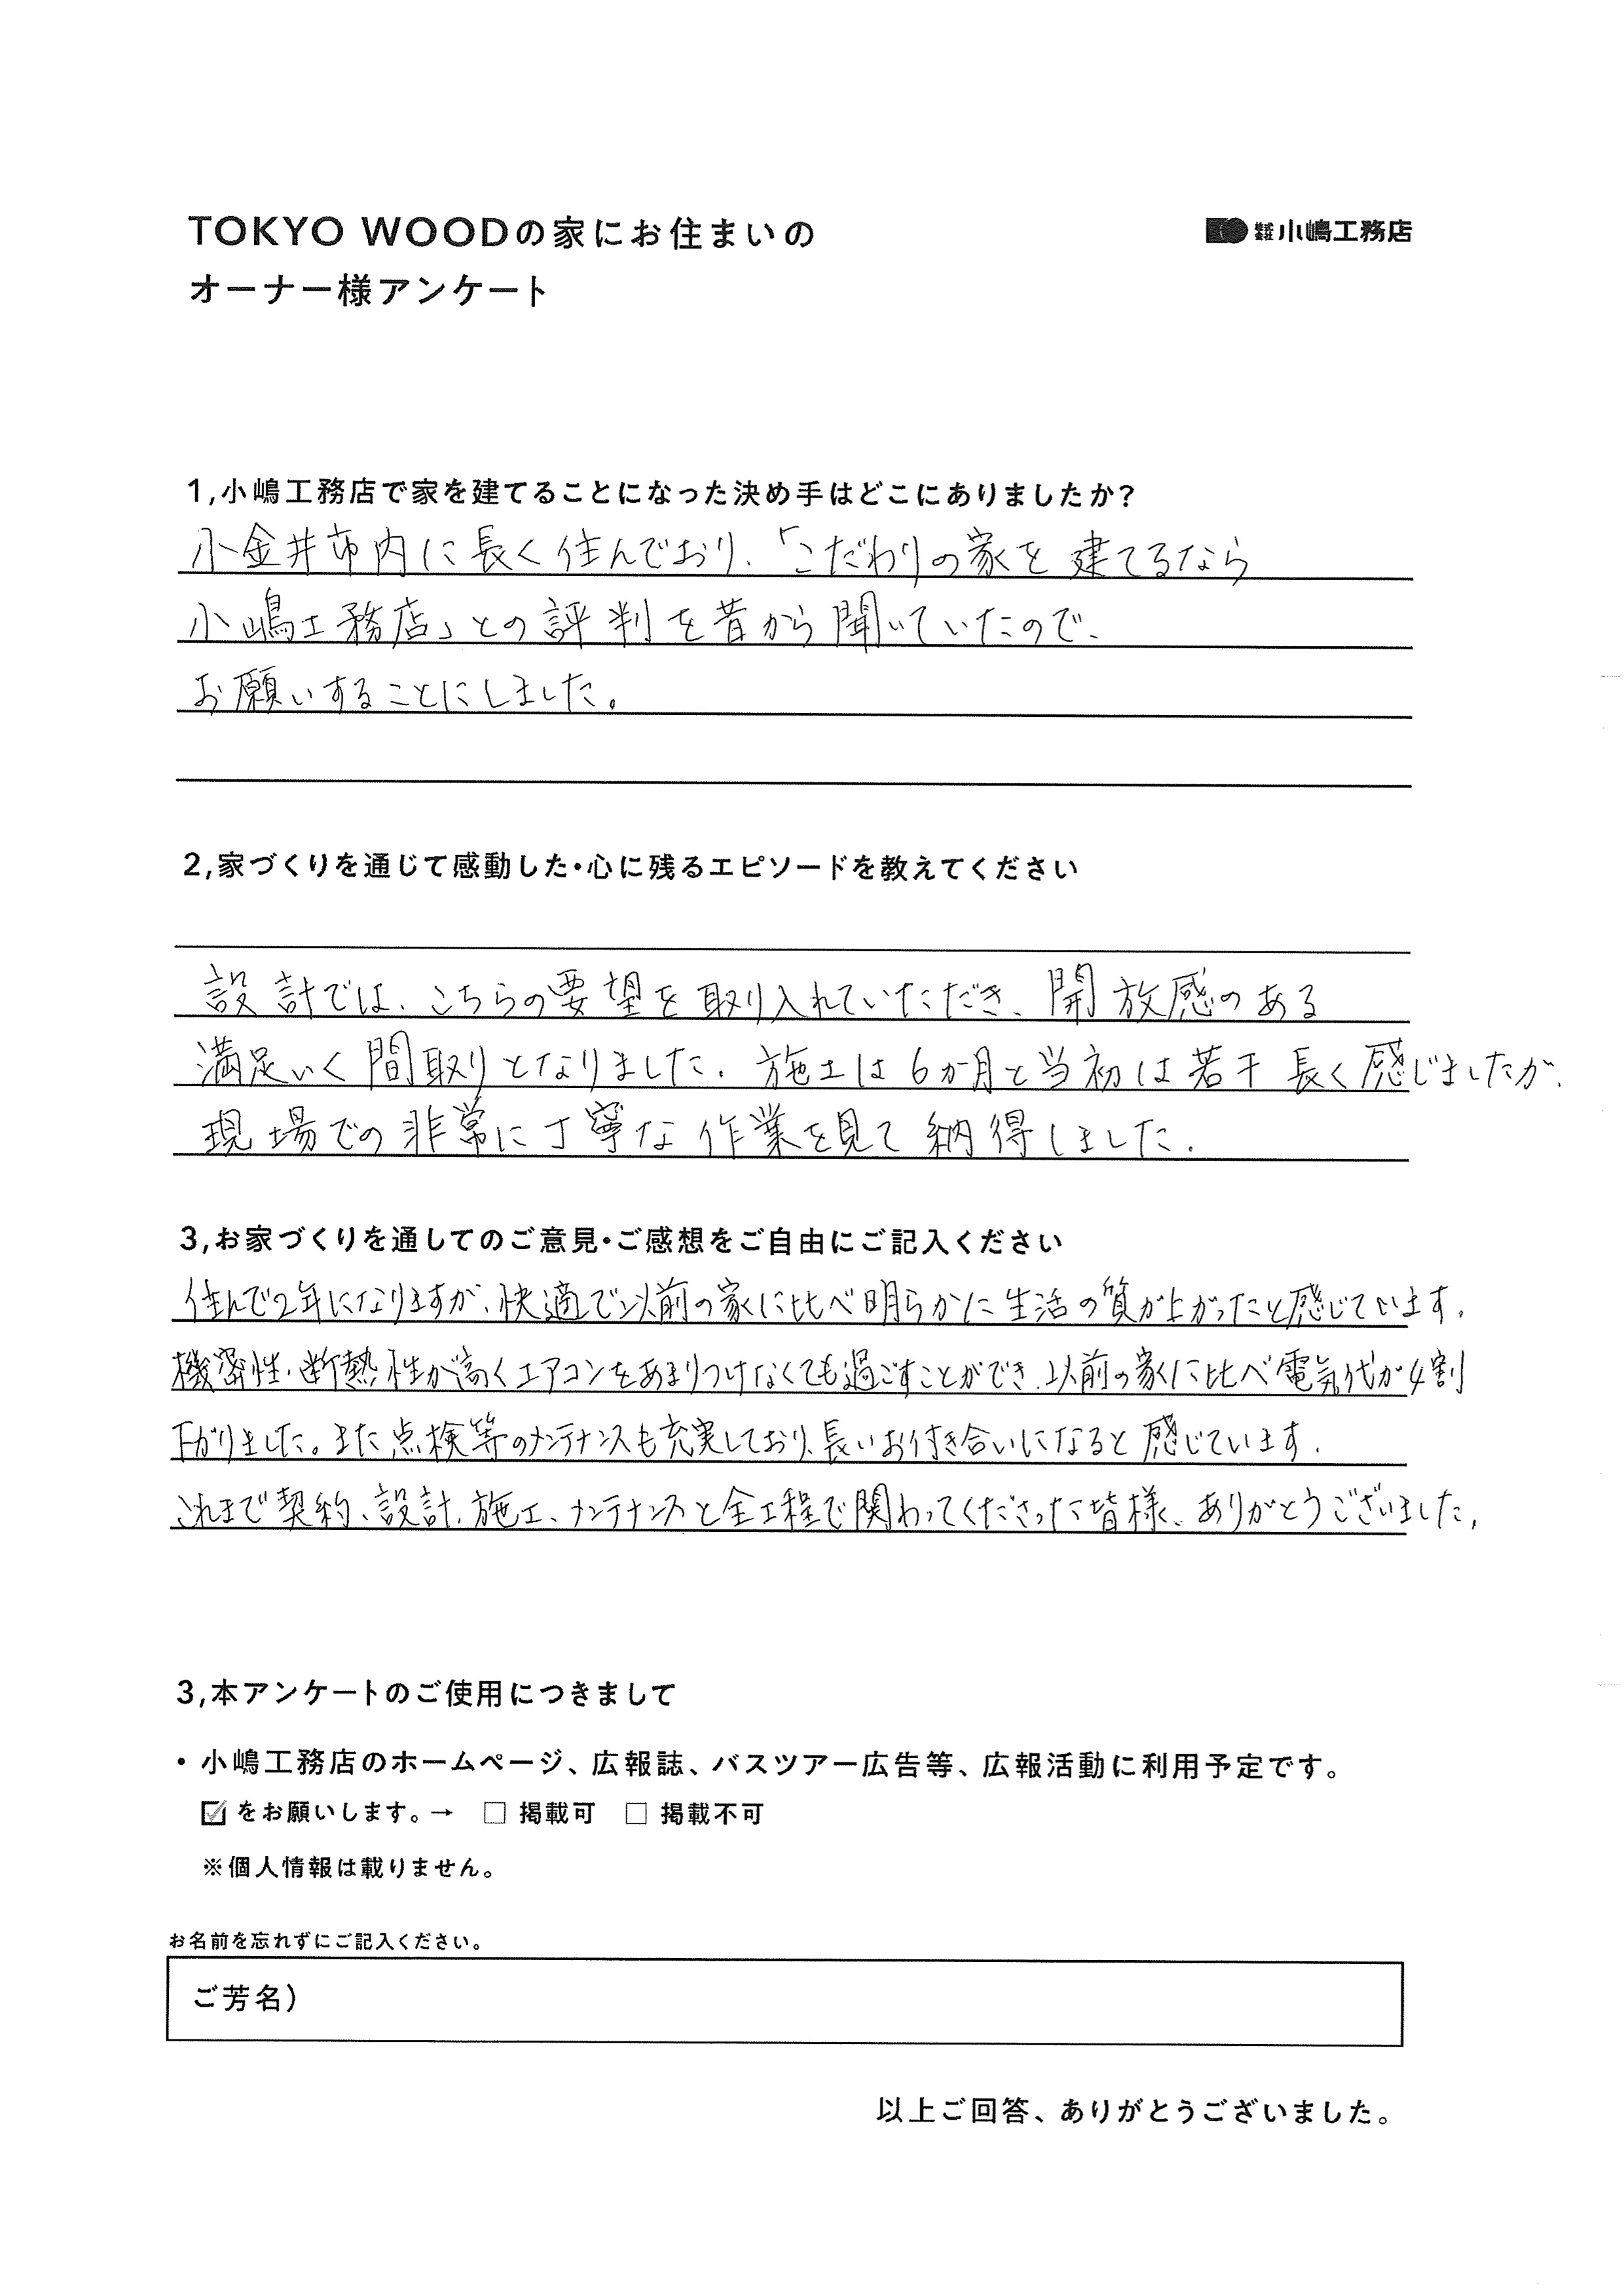 TOKYO WOODの家にお住まいの
オーナー様アンケート
株式会社 小嶋工務店
1,小嶋工務店で家を建てることになった決め手はどこにありましたか?
小金井市内に長く住んでおり、「こだわりの家を建てるなら
小嶋工務店」との評判を昔から聞いていたので、
お願いすることにしました。
2,家づくりを通じて感動した・心に残るエピソードを教えてください
設計では、こちらの要望を取り入れていただき、開放感のある
満足いく間取りとなりました。施工は6か月と当初は若干長く感じましたが、
現場での非常に丁寧な作業を見て納得しました。
3,お家づくりを通してのご意見・ご感想をご自由にご記入ください
住んで2年になりますが、快適で以前の家に比べ明らかに生活の質が上がったと感じています。
機密性・断熱性が高くエアコンをあまりつけなくても過ごすことができ、以前の家に比べ電気代が4割
下がりました。また点検等のメンテナンスも充実しており、長いお付き合いになると感じています。
これまで契約、設計、施工、メンテナンスと全工程で関わってくださった皆様、ありがとうございました。
3,本アンケートのご使用につきまして
・小嶋工務店のホームページ、広報誌、バスツアー広告等、広報活動に利用予定です。
☑をお願いします。→ □ 掲載可 □ 掲載不可
※個人情報は載りません。
お名前を忘れずにご記入ください。
ご芳名)
以上ご回答、ありがとうございました。